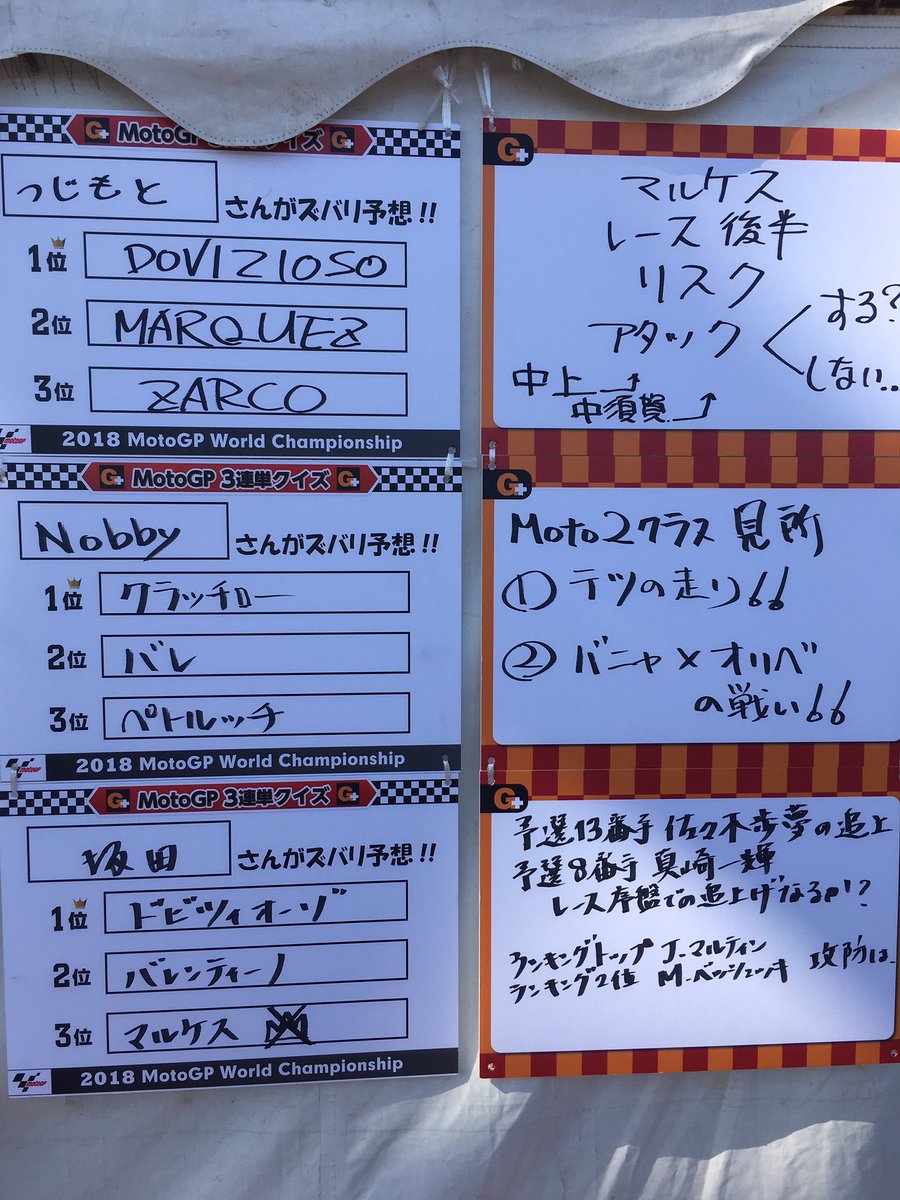 G+ MotoGP 3連単クイズ G+
つじもと さんがズバリ予想!!
1位 DOVIZIOSO
2位 MARQUEZ
3位 ZARCO
motoGP 2018 MotoGP World Championship
G+
マルケス
レース 後半
リスク
アタック
する?
しない..
中上
中須賀
G+ MotoGP 3連単クイズ G+
Nobby さんがズバリ予想!!
1位 クラッチロー
2位 バレ
3位 ペトルッチ
motoGP 2018 MotoGP World Championship
G+
Moto2クラス 見所
① テツの走り!!
② バニャ×オリベ
の戦い!!
G+ MotoGP 3連単クイズ G+
坂田 さんがズバリ予想!!
1位 ドビツィオーゾ
2位 バレンティーノ
3位 マルケス
motoGP 2018 MotoGP World Championship
G+
予選13番手 佐々木歩夢の追上
予選8番手 真崎一輝
レース序盤での追上げなるか!?
ランキングトップ J-マルティン
ランキング2位 M-ベッツェッキ 攻防は..